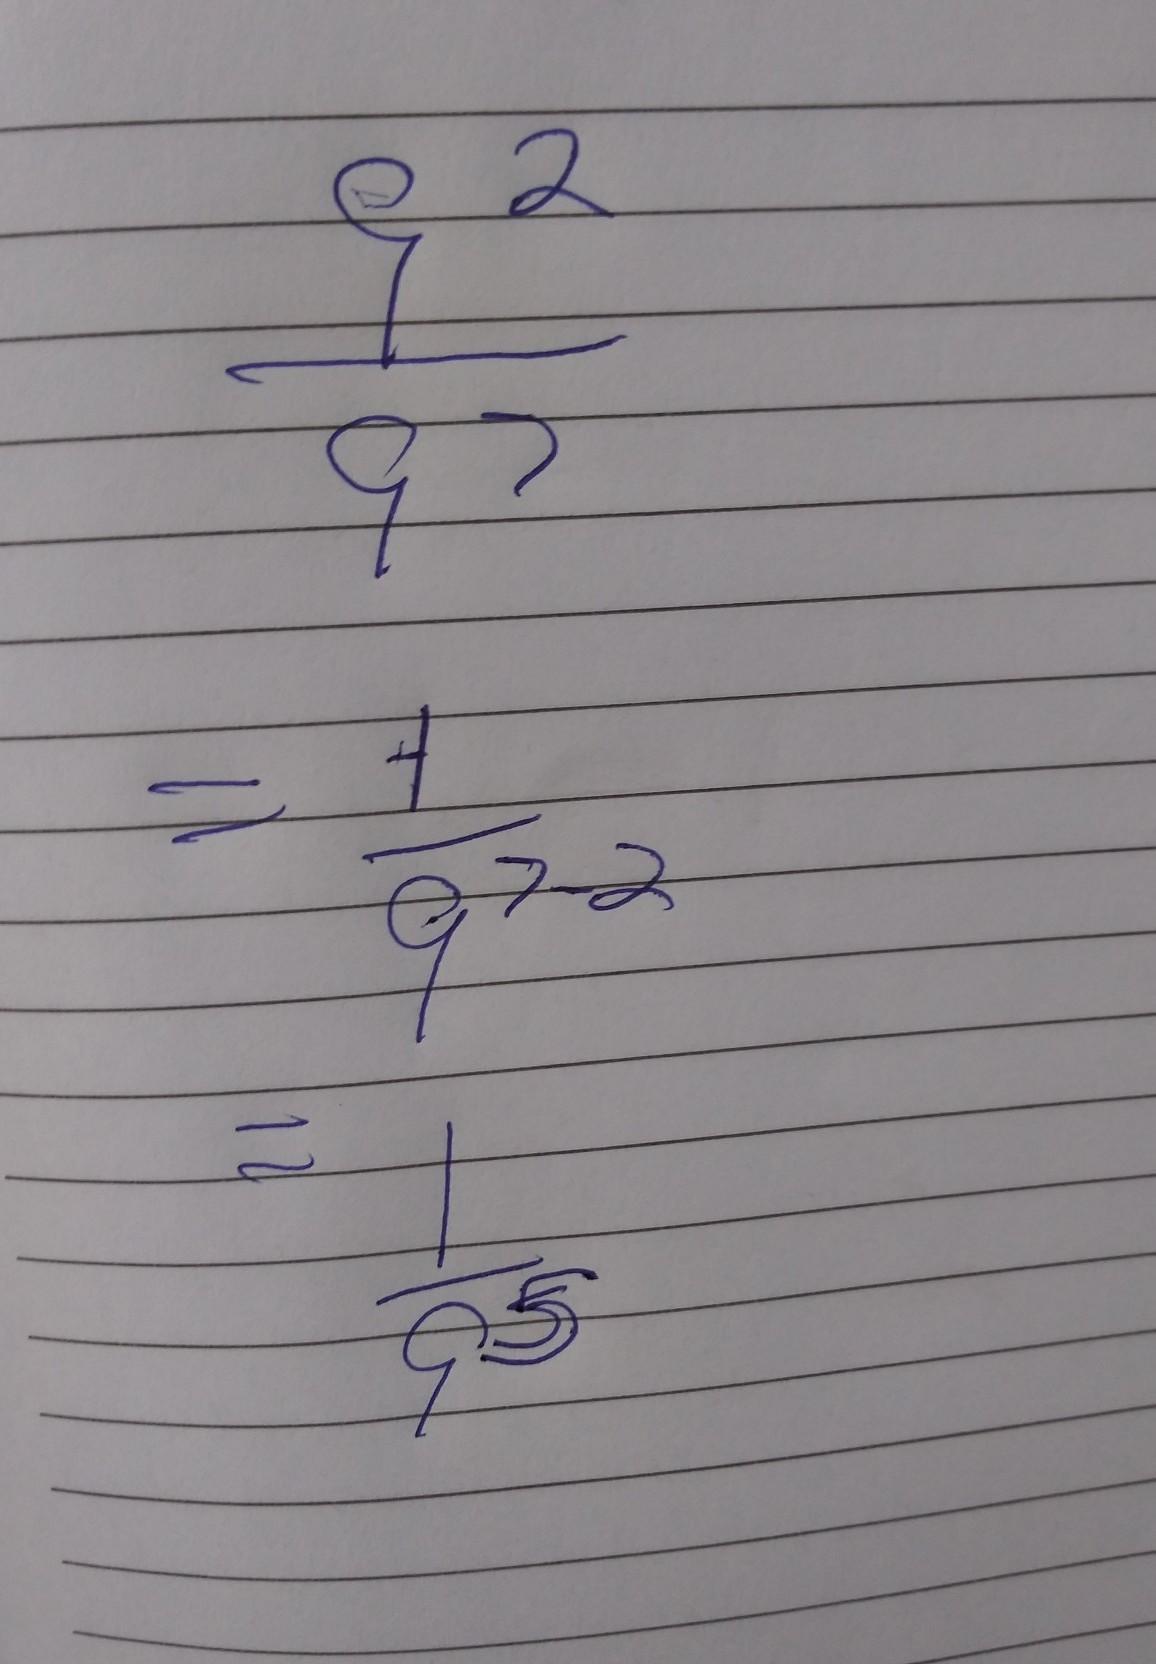 9 2
9 7
= 1
9 7-2
= 1
9 5